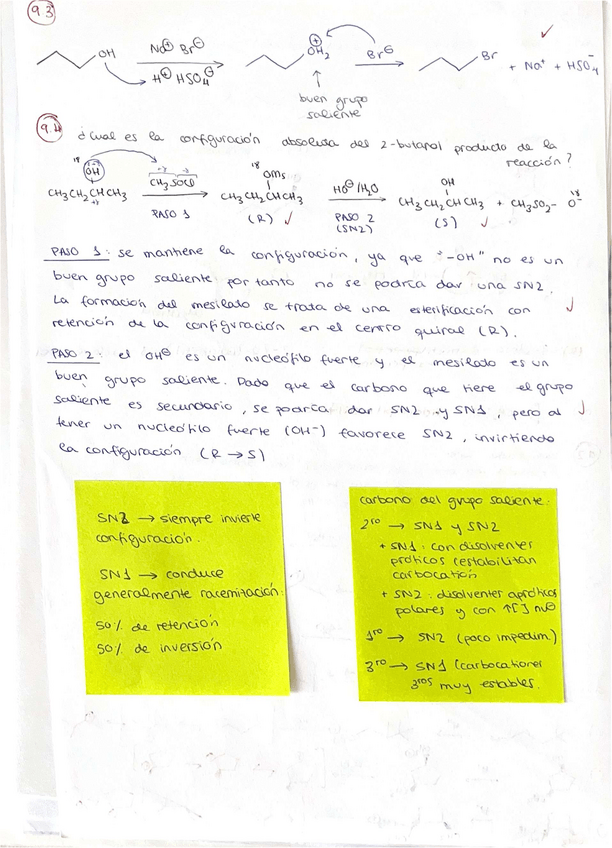 9.3
OH Na⊕ Br⊖ ⊕OH₂ Br⊖ Br
H⊕ HSO₄⊖ + Na⁺ + HSO₄⁻
↑
buen grupo
saliente
9.4 ¿Cual es la configuración absoluta del 2-butanol producto de la
reacción?
¹⁸ÖH CH₃SO₂Cl ¹⁸OMs HO⊖/H₂O OH
CH₃CH₂CHCH₃ → CH₃CH₂CHCH₃ → CH₃CH₂CHCH₃ + CH₃SO₂-¹⁸O⁻
PASO 1 (R) PASO 2 (S)
(SN2)
PASO 1: se mantiene la configuración, ya que "-OH" no es un
buen grupo saliente por tanto no se podría dar una SN2.
La formación del mesilado se trata de una esterificación con
retención de la configuración en el centro quiral (R).
PASO 2: el OH⊖ es un nucleófilo fuerte y el mesilado es un
buen grupo saliente. Dado que el carbono que tiene el grupo
saliente es secundario, se podría dar SN2 y SN1, pero al
tener un nucleófilo fuerte (OH⁻) favorece SN2, invirtiendo
la configuración (R → S)
SN2 → siempre invierte
configuración.
SN1 → conduce
generalmente racemización:
50% de retención
50% de inversión
carbono del grupo saliente:
2ʳᵒ → SN1 y SN2
+ SN1: con disolventes
próticos (estabilitan
carbocatión
+ SN2: disolventes apróticos
polares y con ↑[] nu⊖
1ʳᵒ → SN2 (poco impedim)
3ʳᵒ → SN1 (carbocationes
3ʳᵒˢ muy estables.